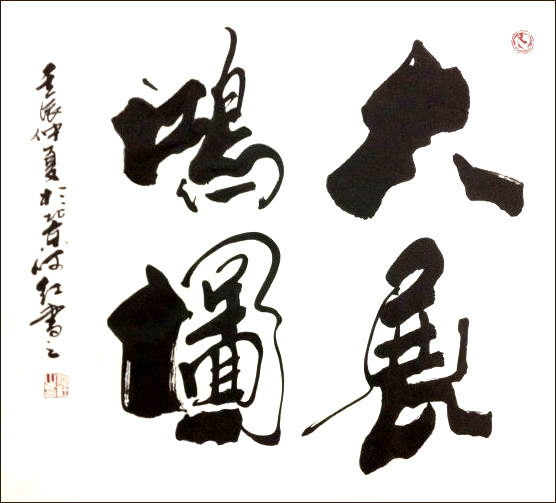 大展
鴻圖
壬辰仲夏於北京红書之